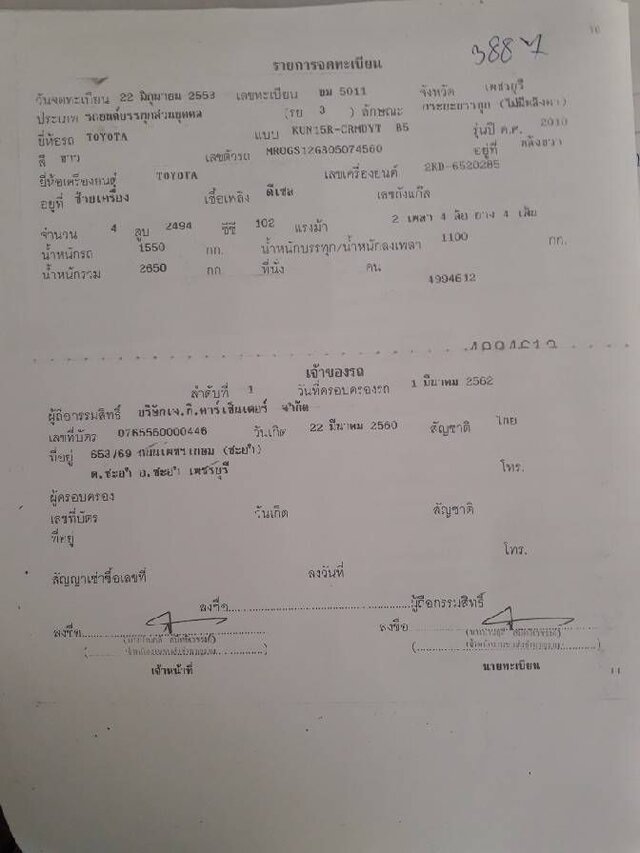 10
3887
รายการจดทะเบียน
วันจดทะเบียน 22 มิถุนายน 2553 เลขทะเบียน บม 5011 จังหวัด เพชรบุรี
ประเภท รถยนต์บรรทุกส่วนบุคคล (รย 3 ) ลักษณะ กระบะบรรทุก (ไม่มีหลังคา)
ยี่ห้อรถ TOYOTA แบบ KUN15R-CRMDYT B5 รุ่นปี ค.ศ. 2010
สี ขาว เลขตัวรถ MR0GS12G305074560 อยู่ที่
ยี่ห้อเครื่องยนต์ TOYOTA เลขเครื่องยนต์ 2KD-6520285
อยู่ที่ ซ้ายเครื่อง เชื้อเพลิง ดีเซล เลขถังแก๊ส
จำนวน 4 สูบ 2494 ซีซี 102 แรงม้า 2 เพลา 4 ล้อ ยาง 4 เส้น
น้ำหนักรถ 1550 กก. น้ำหนักบรรทุก/น้ำหนักลงเพลา 1100 กก.
น้ำหนักรวม 2650 กก ที่นั่ง คน
4994612
4994612
เจ้าของรถ
ลำดับที่ 1 วันที่ครอบครองรถ 1 มีนาคม 2562
ผู้ถือกรรมสิทธิ์ บริษัทเจ.ที.คาร์เซ็นเตอร์ จำกัด
เลขที่บัตร 0765560000446 วันเกิด 22 มีนาคม 2560 สัญชาติ ไทย
ที่อยู่ 653/69 ถนนเพชรเกษม (ชะอำ)
ต.ชะอำ อ.ชะอำ เพชรบุรี โทร.
ผู้ครอบครอง
เลขที่บัตร วันเกิด สัญชาติ
ที่อยู่
โทร.
สัญญาเช่าซื้อเลขที่ ลงวันที่
ลงชื่อ ผู้ถือกรรมสิทธิ์
ลงชื่อ ลงชื่อ
เจ้าหน้าที่ นายทะเบียน
11